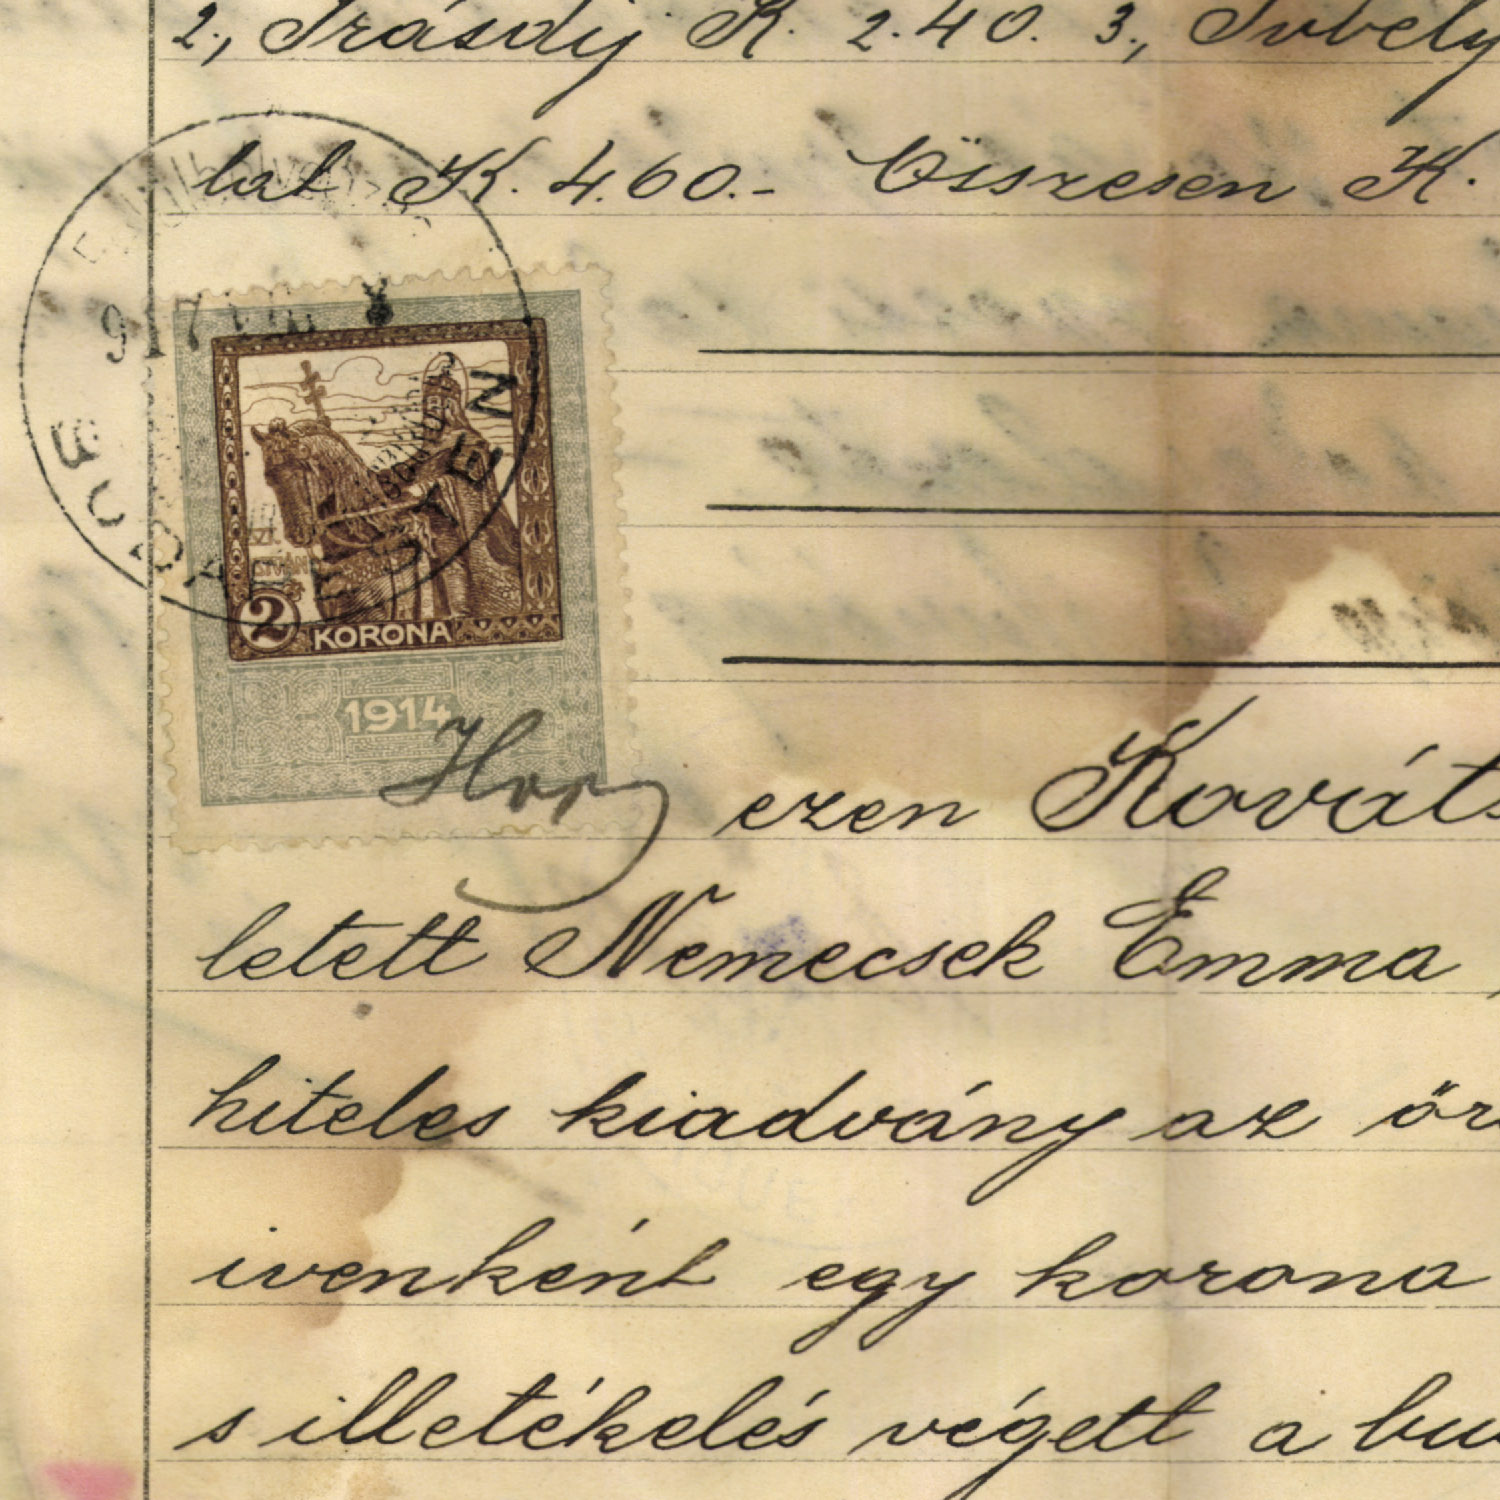 2., Irásdij K. 2.40. 3., Ivbély
lat K. 4.60.- Összesen K.
BUDAPESTEN
SZT. ISTVÁN
2 KORONA
1914
ezen Kováts
letett Nemecsek Emma
hiteles kiadvány az ör
ivenként egy korona
s illetékelés végett a bu